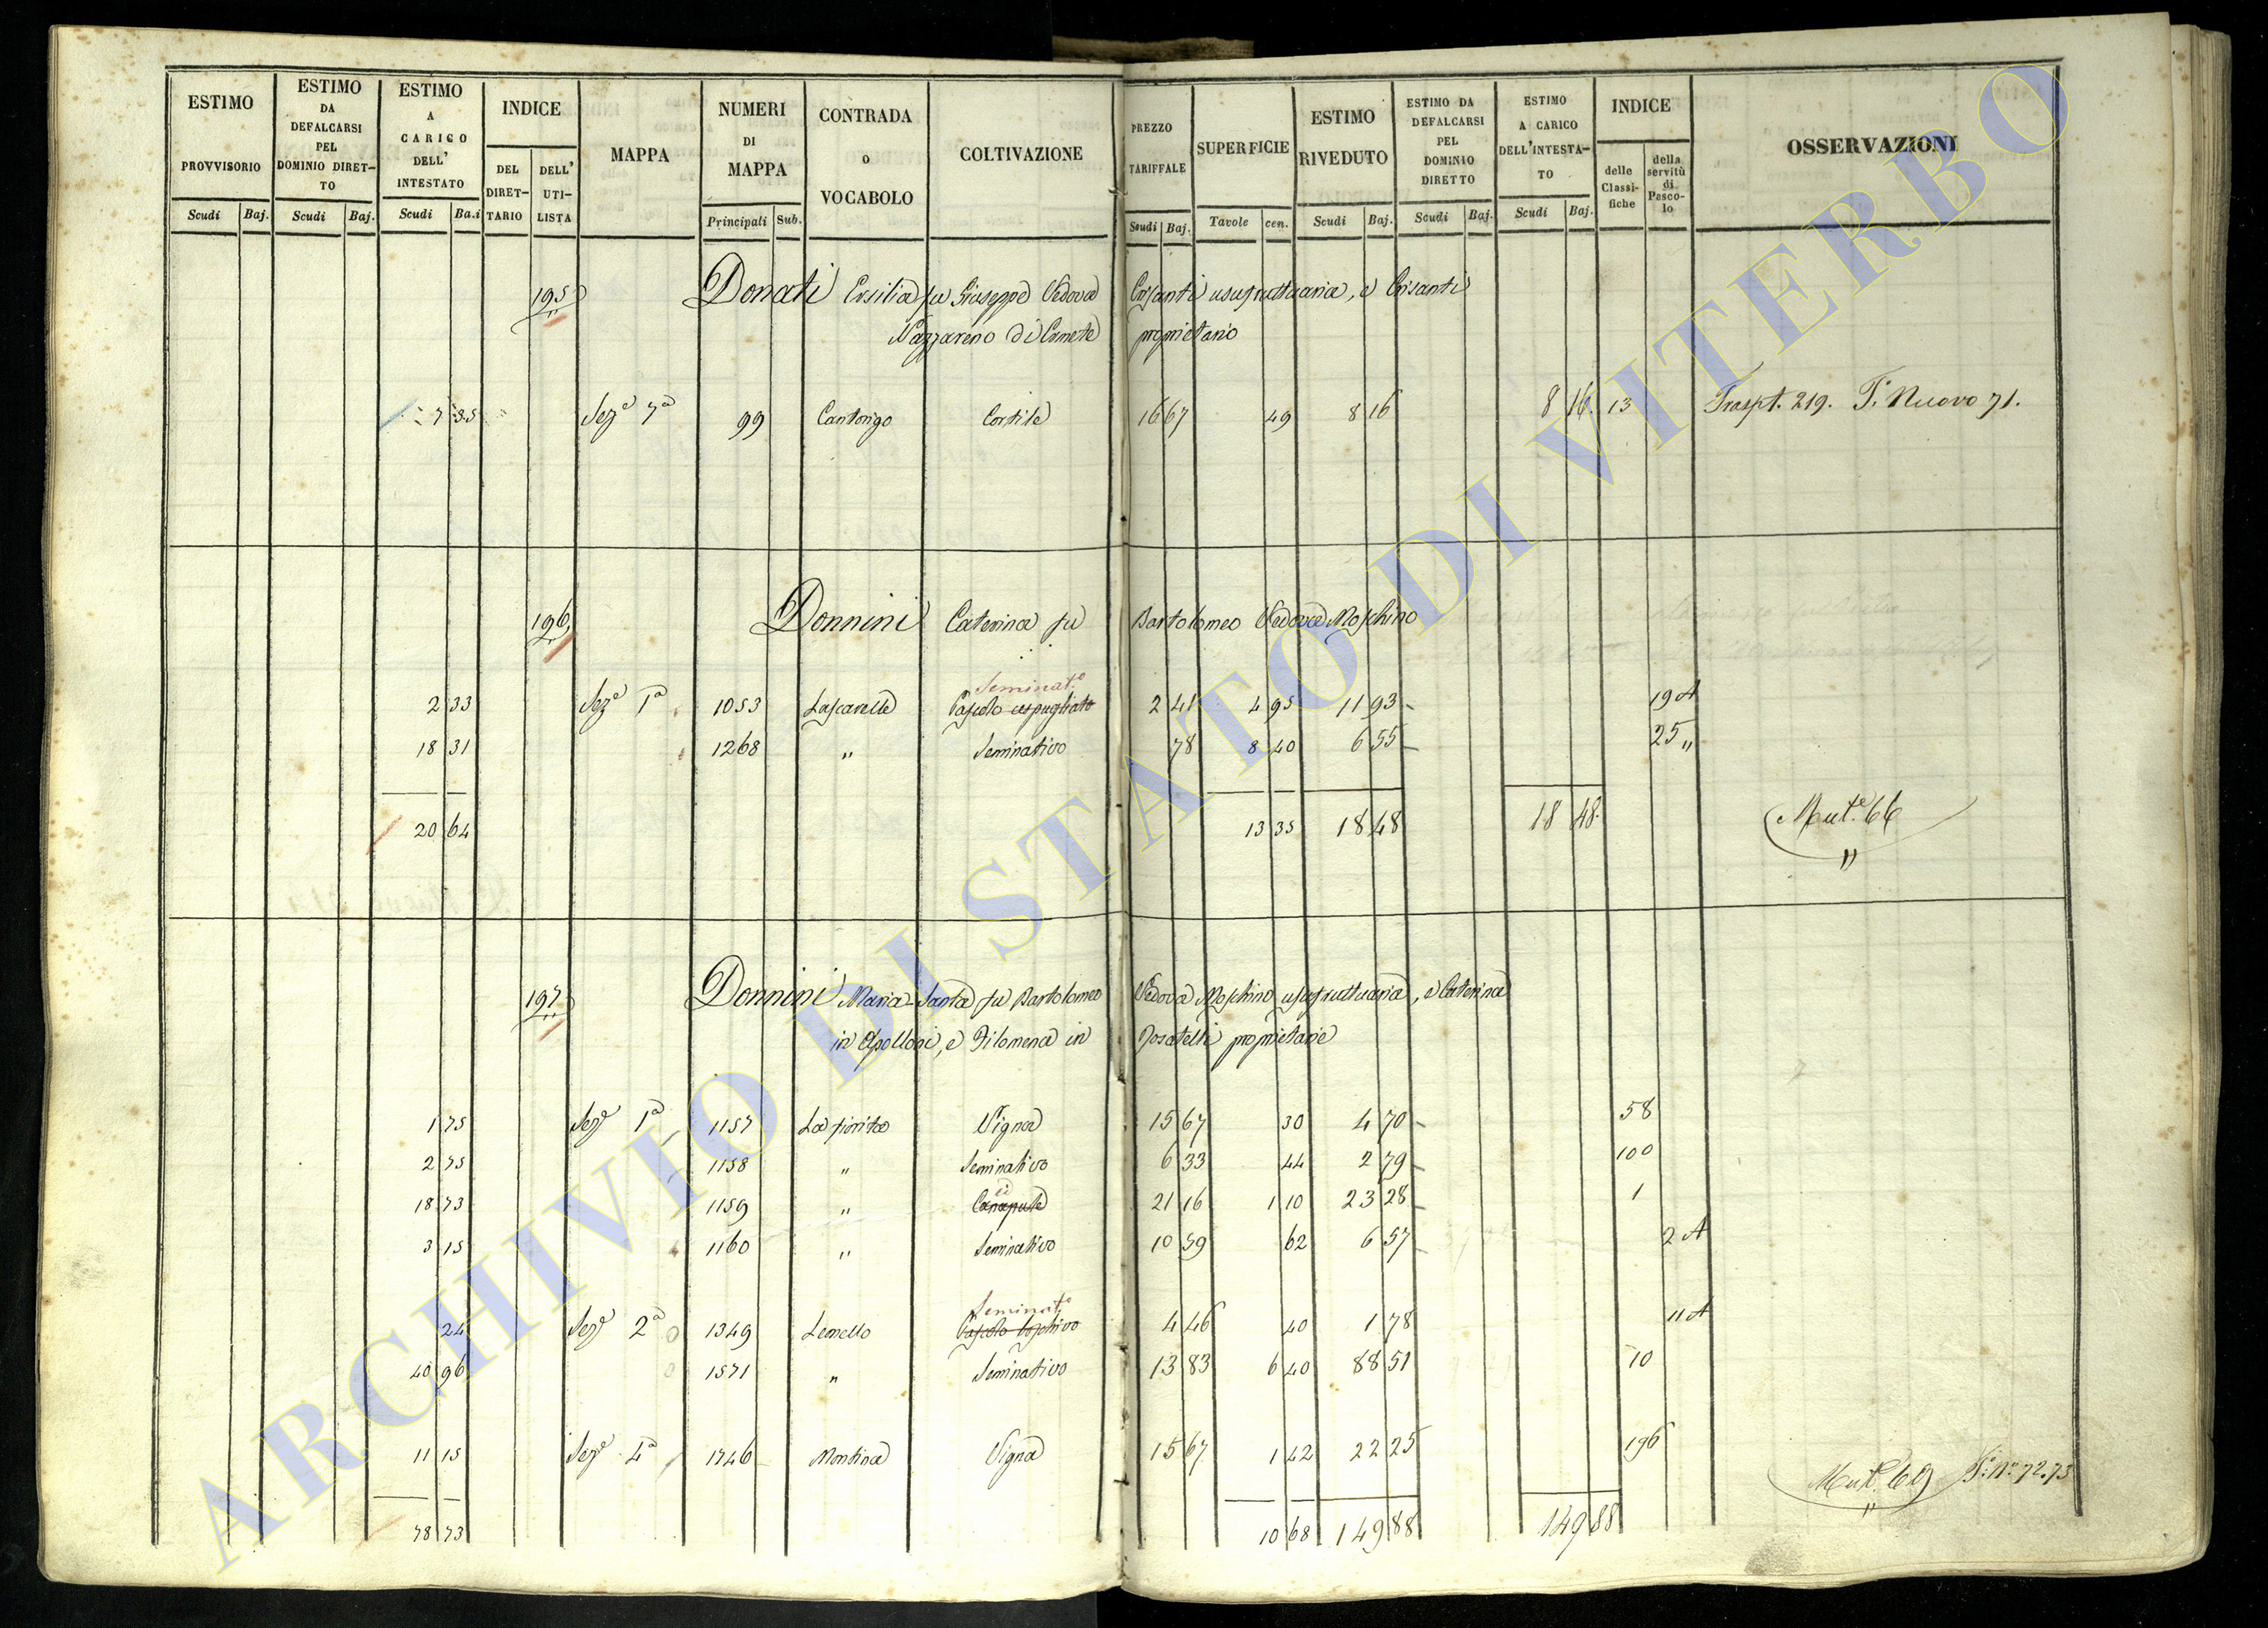 ESTIMO PROVVISORIO Scudi Baj.
ESTIMO DA DEFALCARSI PEL DOMINIO DIRET-TO Scudi Baj.
ESTIMO A CARICO DELL' INTESTATO Scudi Ba.i
INDICE DEL DIRET-TARIO DELL' UTI-LISTA
MAPPA
NUMERI DI MAPPA Principali Sub.
CONTRADA O VOCABOLO
COLTIVAZIONE
PREZZO TARIFFALE Scudi Baj.
SUPERFICIE Tavole cen.
ESTIMO RIVEDUTO Scudi Baj.
ESTIMO DA DEFALCARSI PEL DOMINIO DIRETTO Scudi Baj.
ESTIMO A CARICO DELL'INTESTA-TO Scudi Baj.
INDICE delle Classi-fiche della servitù di Pasco-lo
OSSERVAZIONI
195 Donati Ersilia fu Giuseppe Vedova Crisanti usufruttuaria, e Crisanti
Nazzareno di Corneto proprietario
7 35 Sez.e 7a 99 Cantongo Cortile 16 67 49 8 16 8 16 13 Traspt. 219. P. Nuovo 71.
196 Donnini Caterina fu Bartolomeo Vedova Moschino
Seminat.o
2 33 Sez.e 1a 1053 Lascarelle Pascolo cespugliato 2 41 4 95 11 93 19 A
18 31 1268 " Seminativo 78 8 40 6 55 25 "
20 64 13 35 18 48 18 48 Mut.e 66
197 Donnini Maria Santa fu Bartolomeo Vedova Moschino usufruttuaria, e Caterina
in Apolloni, e Filomena in Dosatelli proprietarie
1 75 Sez.e 1a 1157 La fiorita Vigna 15 67 30 4 70 58
2 75 1158 " Seminativo 6 33 44 2 79 100
18 73 1159 " Canapule 21 16 1 10 23 28 1
3 15 1160 " Seminativo 10 59 62 6 57 2 A
Seminat.o
24 Sez.e 2a 1349 Lemello Pascolo boschivo 4 46 40 1 78 11 A
40 96 1571 " Seminativo 13 83 6 40 88 51 10
11 15 Sez.e 4a 1746 Montina Vigna 15 67 1 42 22 25 196
Mut.e 69 P. N.o 72.73
78 73 10 68 149 88 149 88
ARCHIVIO DI STATO DI VITERBO